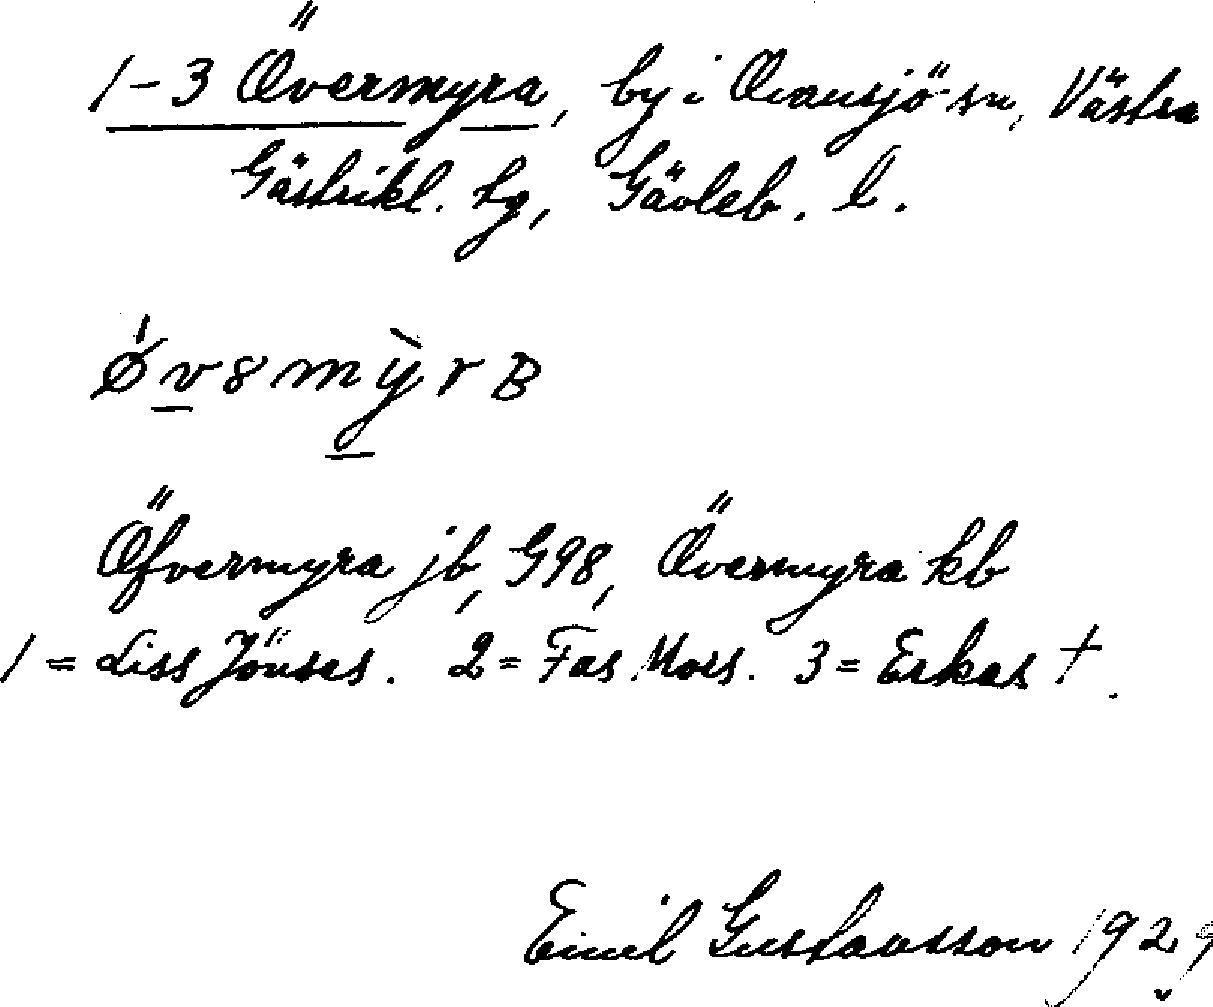 1-3 Övermyra, by i Ovansjö sn, Västra
Gästrikl. tg, Gävleb. l.
Öfvermyra jb, G98, Övermyra kb
1 = Liss Jönses. 2 = Fas Mors. 3 = Erkas †.
Emil Gustavsson 1929